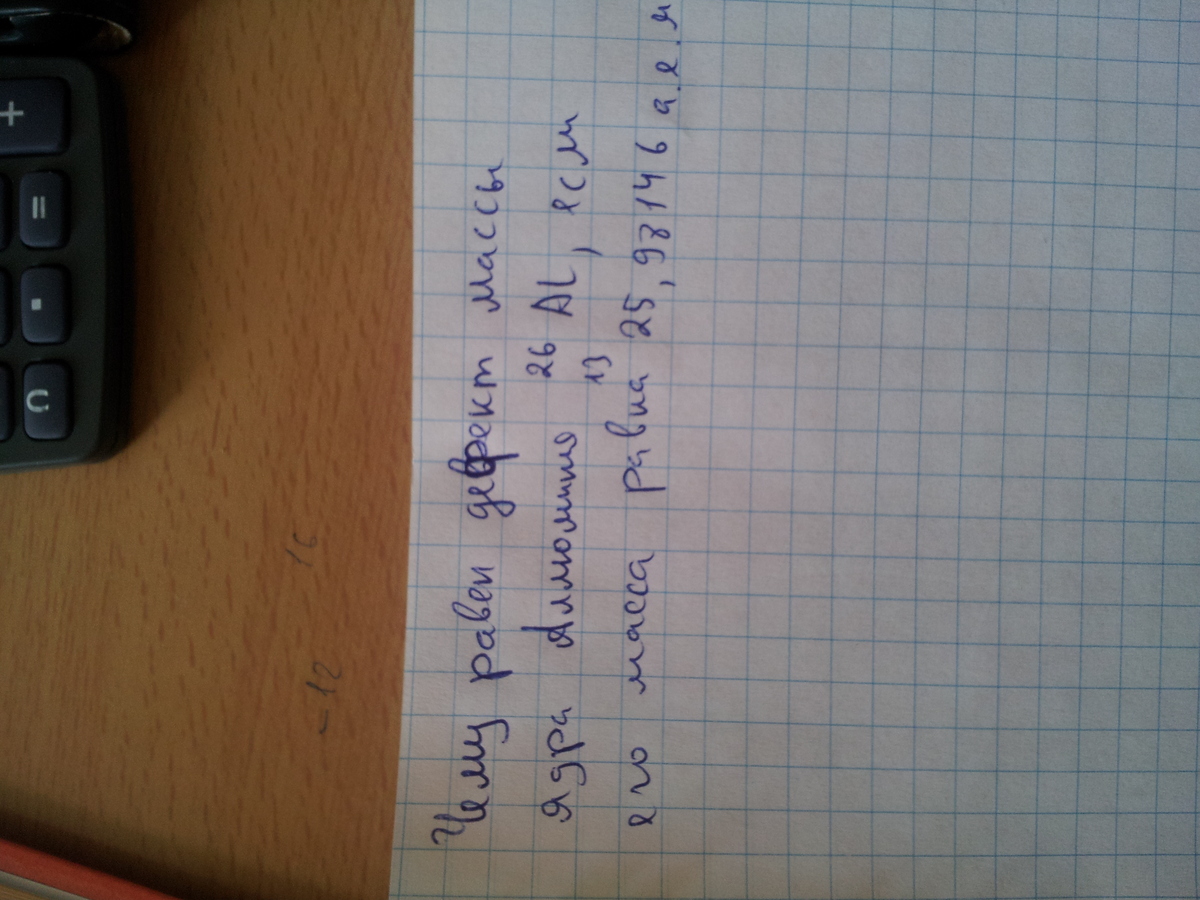 Чему равен дефект массы
ядра Алюминия ²⁶₁₃Al, если
его масса равна 25,98146 а.е.м
-12 16
+
=
.